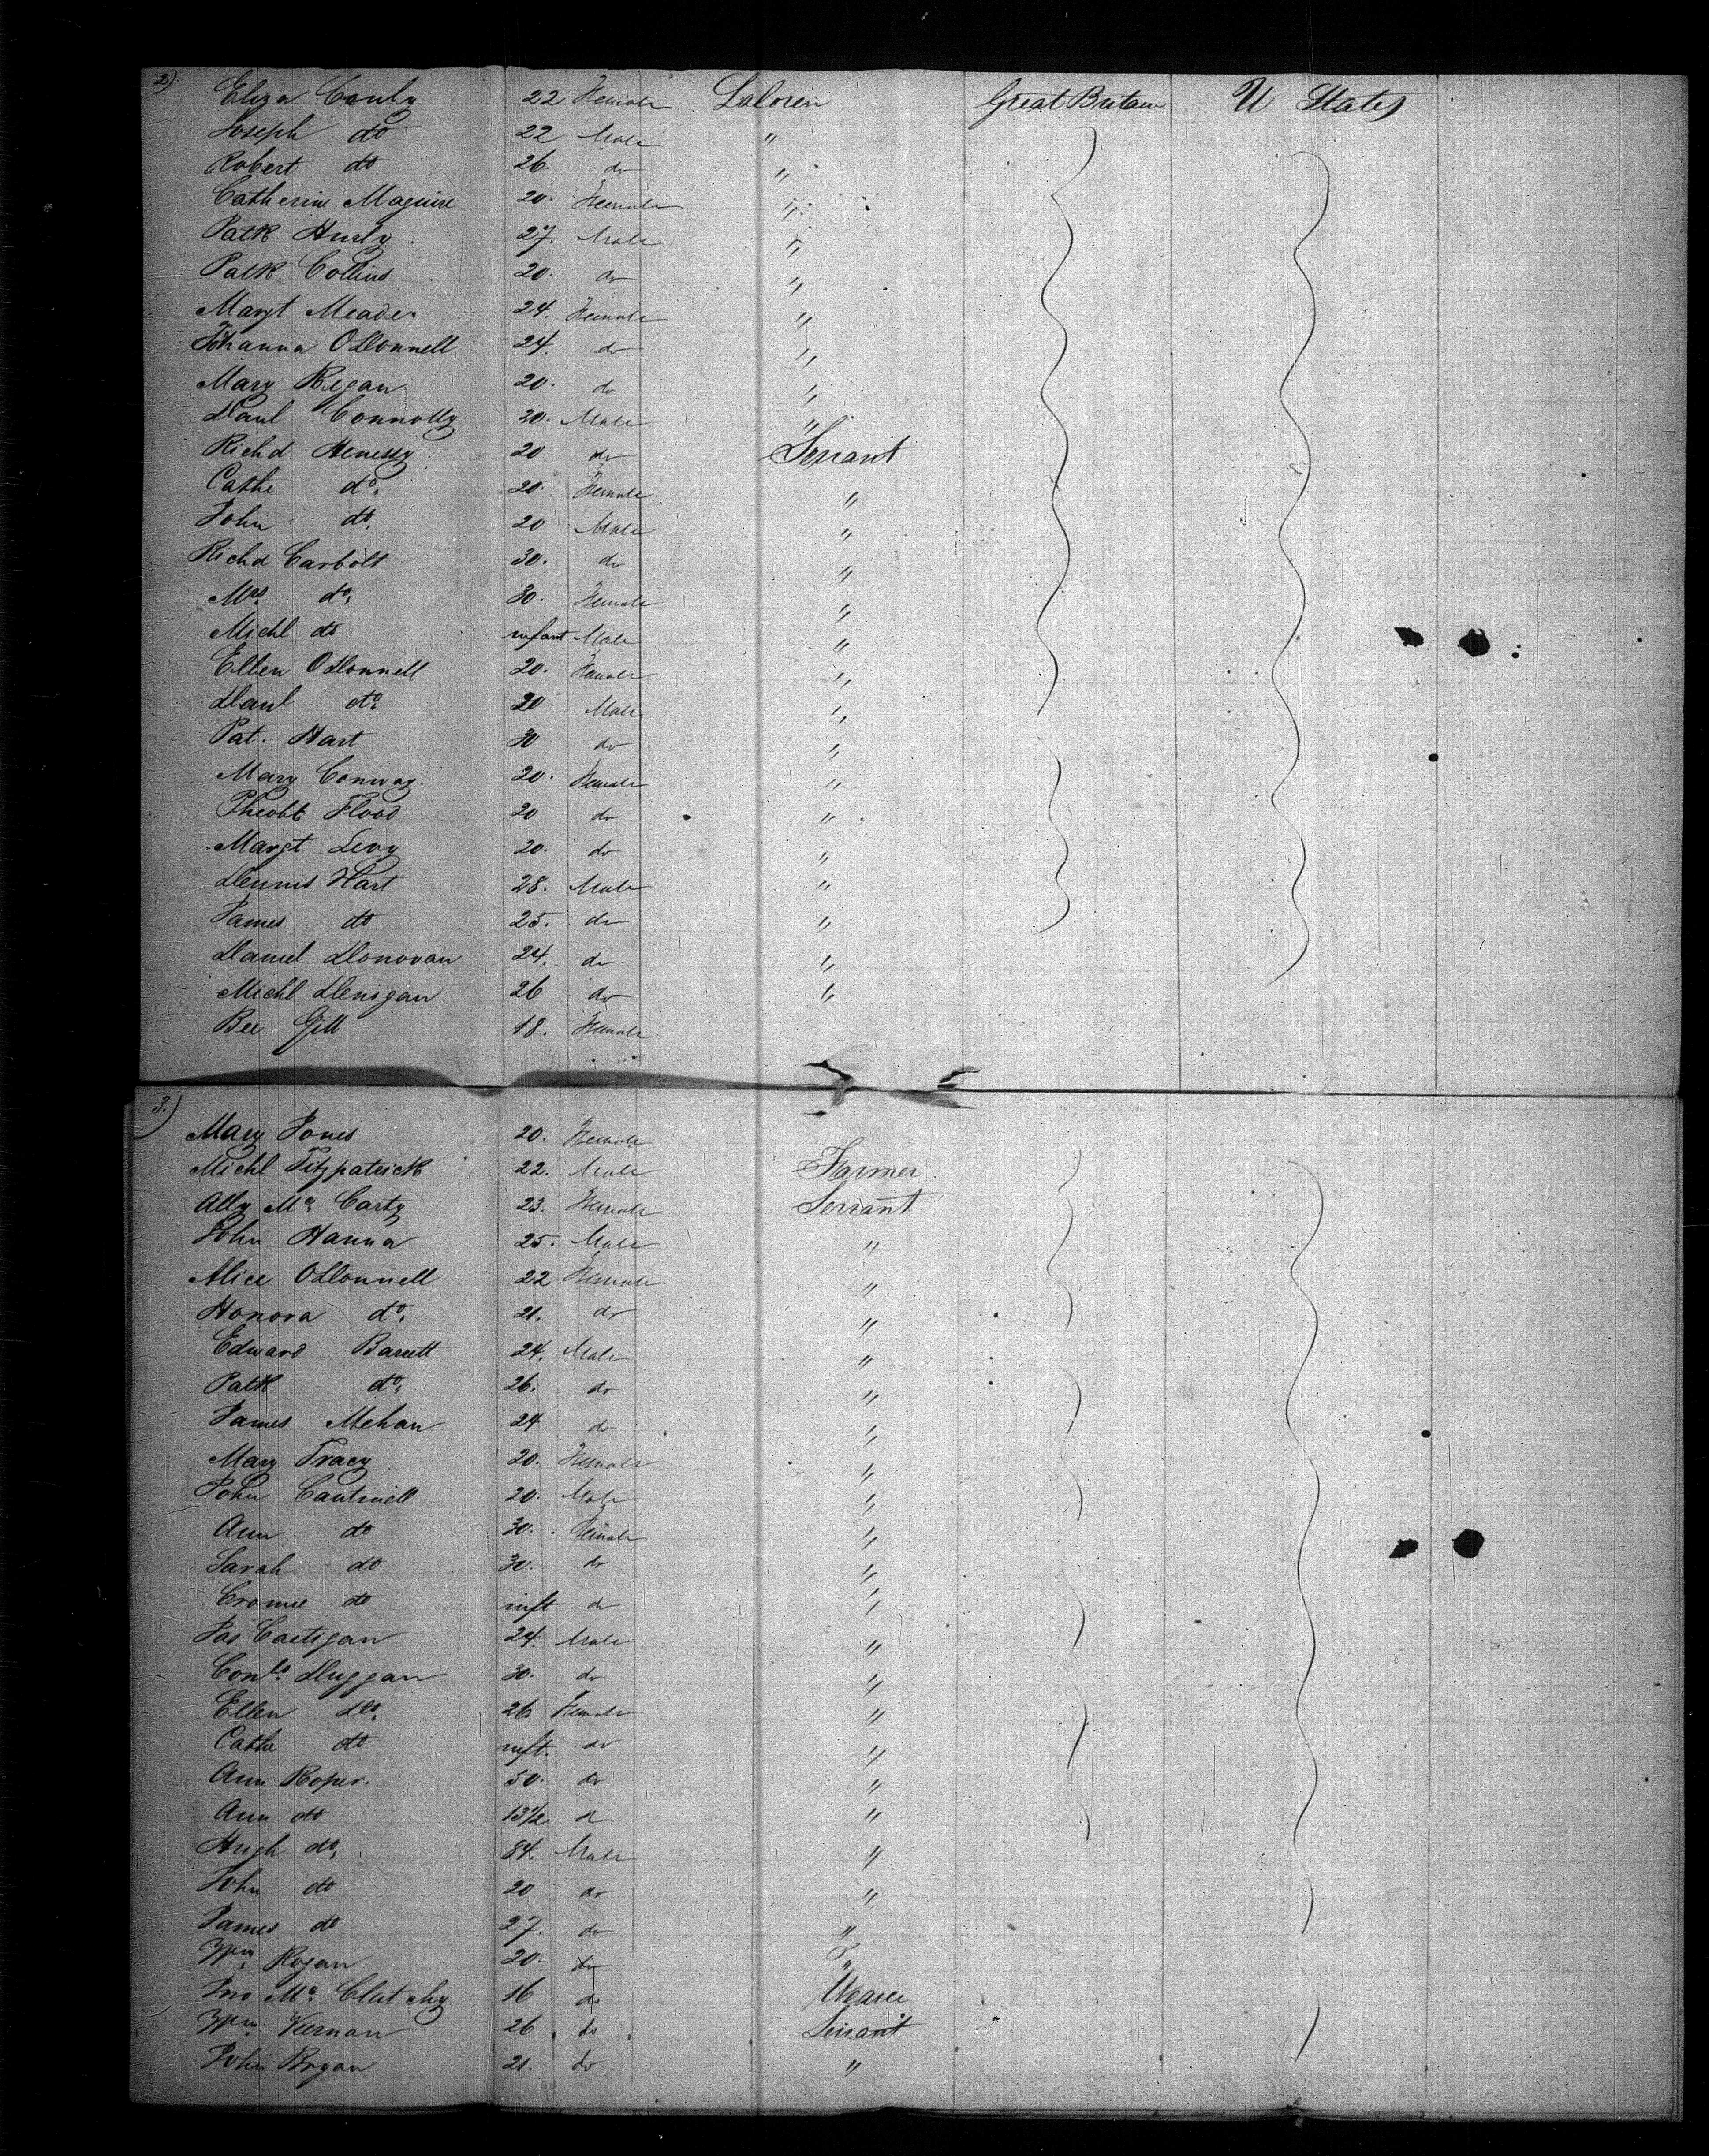 2) Eliza Conly 22 Female Laloren Great Britain U States
Joseph do 22 Male "
Robert do 26. do "
Catherine Maguire 20. Female "
Patk Hurly 27. Male "
Patk Collins 20. do "
Margt Meade 24. Female "
Johanna ODonnell 24. do "
Mary Regan 20. do "
Danl Connolly 20. Male "
Richd Henessy 20 do Servant
Cathe do. 20. Female "
John do. 20 Male "
Richd Carbolt 30. do "
Mrs. do. 30. Female "
Michl do infant Male "
Ellen ODonnell 20. Female "
Danl do. 20 Male "
Pat. Hart 30 do "
Mary Conway 20. Female "
Pheobe Flood 20 do "
Margt Levy 20. do "
Dennis Hart 28. Male "
James do 25. do "
Daniel Donovan 24. do "
Michl Denigan 26 do "
Bee Gill 18. Female
3.) Mary Jones 20. Female
Michl Fitzpatrick 22. Male Farmer
Ally Mc. Carty 23. Female Servant
John Hanna 25. Male "
Alice ODonnell 22 Female "
Honora do. 21. do "
Edward Barrett 24. Male "
Patk do. 26. do "
James Mehan 24 do "
Mary Tracy 20. Female "
John Cantwell 20. Male "
Ann do 30. Female "
Sarah do 30. do "
do inft do "
Jas Castigan 24. Male "
Duggan 30. do "
Ellen Do. 26 Female "
Cathe do inft. do "
Ann Roper. 50. do "
Ann do 13½ do "
Hugh do. 84. Male "
John do 20 do "
James do 27. do "
Wm. Rogan 20. do "
Jno Mc. Clutchy 16 do
Wm Kernan 26. do Servant
John Bryan 21. do "